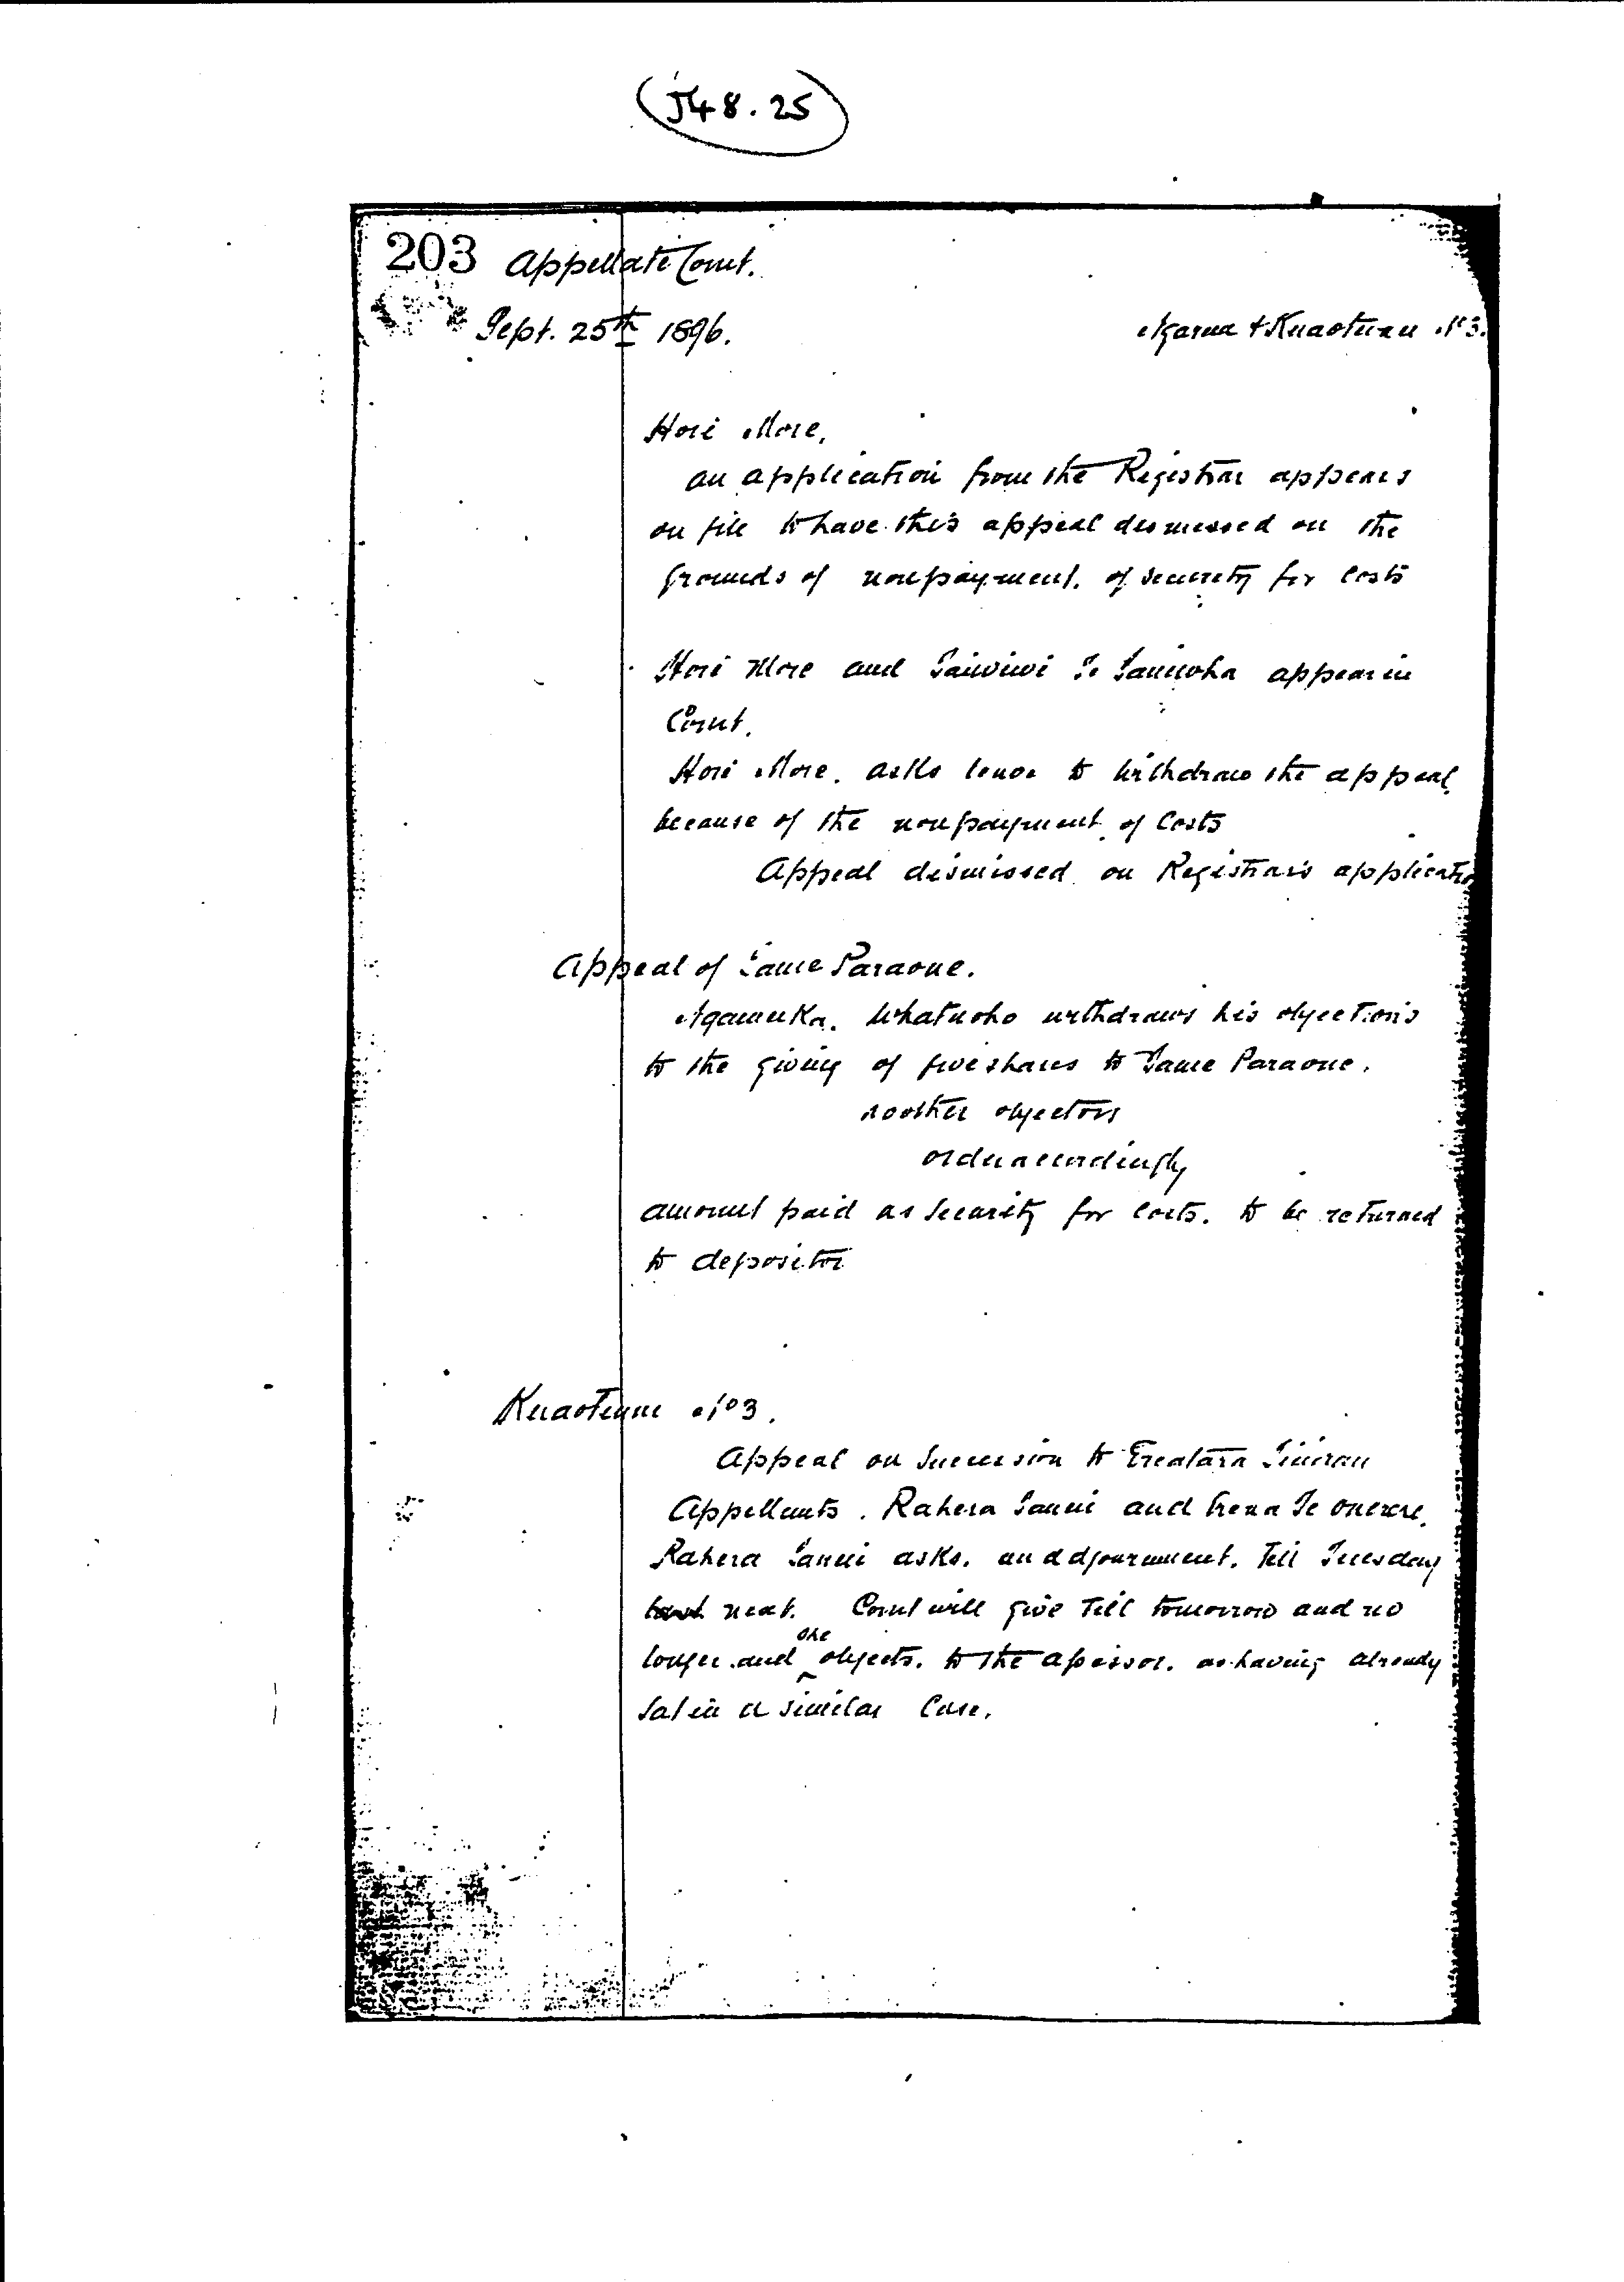 J48.25
203 Appellate Court.
Sept. 25th 1896.
Ngarua & Kuaotunu No 3.
Hori More,
an application from the Registrar appears
on file to have this appeal dismissed on the
grounds of nonpayment. of security for costs
Hori More and Taiwiwi Te Taniwha appear in
Court.
Hori More. asks leave to withdraw the appeal
because of the nonpayment of Costs
Appeal dismissed on Registrar's applicatio
Appeal of Tame Paraone.
Ngamuka. Whatuoho withdraws his objections
to the giving of five shares to Tame Paraone.
no other objectors
order accordingly
amount paid as security for costs. to be returned
to depositor
Kuaotunu No 3.
Appeal on Succession to
Appellants. Rahera Tanui and Te Onerere.
Rahera Tanui asks. an adjournment. Till Tuesday
next. Court will give Till tomorrow and no
longer. and she objects. to the assessor. as having already
sat in a similar Case.